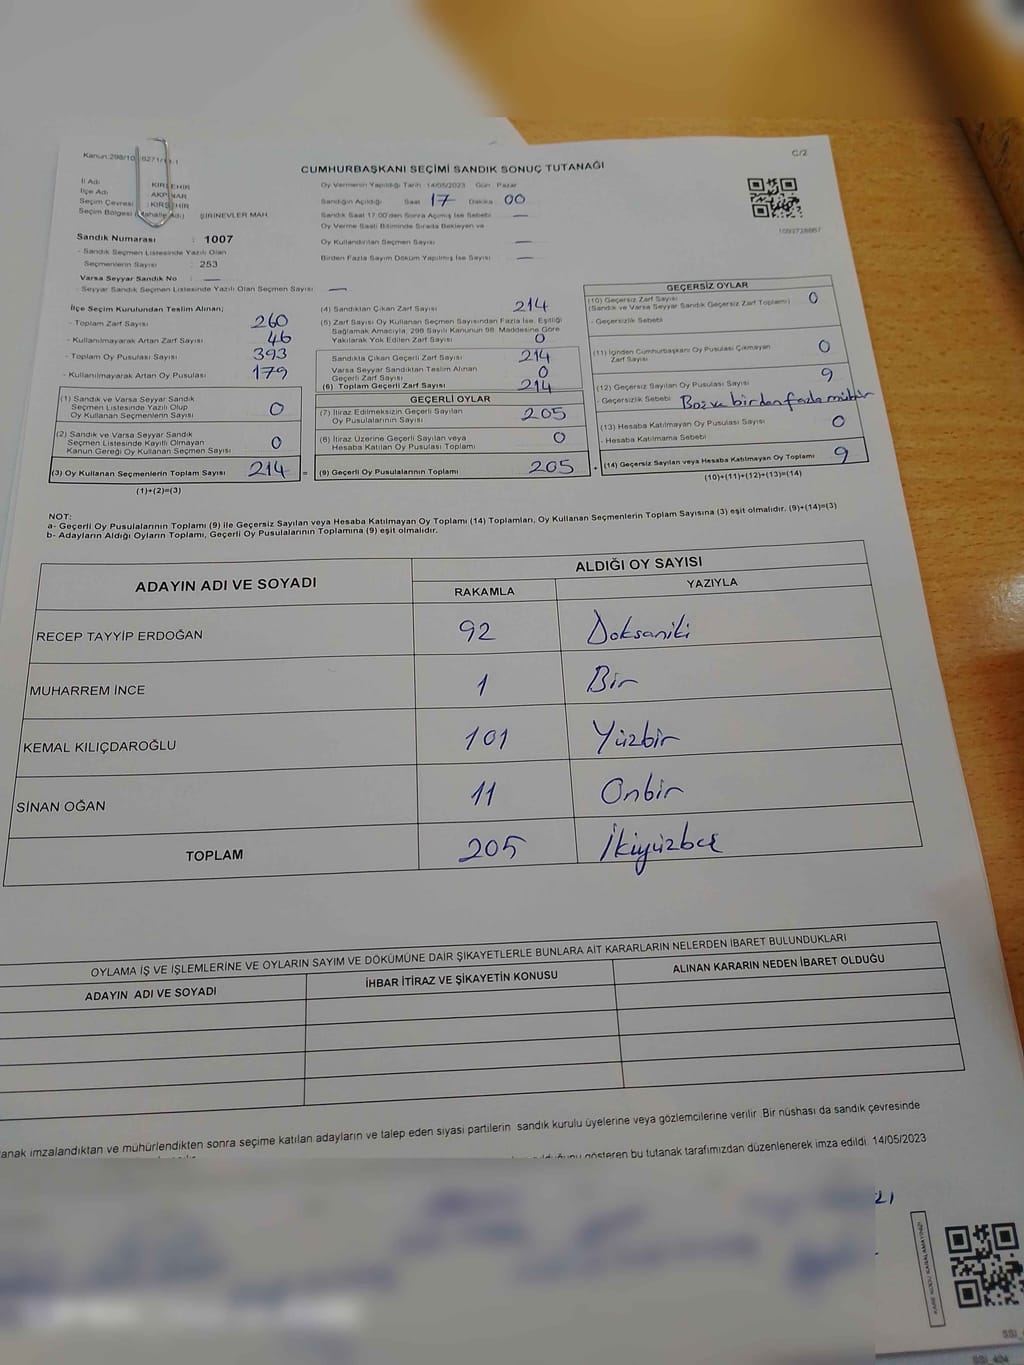 Kanun:298/10
C/2
CUMHURBAŞKANI SEÇİMİ SANDIK SONUÇ TUTANAĞI
İl Adı : KIRŞEHİR
İlçe Adı : AKPINAR
Seçim Çevresi : KIRŞEHİR
Seçim Bölgesi (Mahalle Adı) ŞİRİNEVLER MAH
Sandık Numarası : 1007
- Sandık Seçmen Listesinde Yazılı Olan
Seçmenlerin Sayısı : 253
Varsa Seyyar Sandık No : —
- Seyyar Sandık Seçmen Listesinde Yazılı Olan Seçmen Sayısı : —
Oy Vermenin Yapıldığı Tarih : 14/05/2023 Gün : Pazar
Sandığın Açıldığı Saat 17 Dakika 00
Sandık Saat 17:00'den Sonra Açılmış İse Sebebi —
Oy Verme Saati Bitiminde Sırada Bekleyen ve
Oy Kullandırılan Seçmen Sayısı —
Birden Fazla Sayım Döküm Yapılmış İse Sayısı —
İlçe Seçim Kurulundan Teslim Alınan;
- Toplam Zarf Sayısı 260
- Kullanılmayarak Artan Zarf Sayısı 46
- Toplam Oy Pusulası Sayısı 393
- Kullanılmayarak Artan Oy Pusulası 179
(1) Sandık ve Varsa Seyyar Sandık
Seçmen Listesinde Yazılı Olup
Oy Kullanan Seçmenlerin Sayısı 0
(2) Sandık ve Varsa Seyyar Sandık
Seçmen Listesinde Kayıtlı Olmayan
Kanun Gereği Oy Kullanan Seçmen Sayısı 0
(3) Oy Kullanan Seçmenlerin Toplam Sayısı 214 =
(1)+(2)=(3)
(4) Sandıktan Çıkan Zarf Sayısı 214
(5) Zarf Sayısı Oy Kullanan Seçmen Sayısından Fazla İse, Eşitliği
Sağlamak Amacıyla, 298 Sayılı Kanunun 98. Maddesine Göre
Yakılarak Yok Edilen Zarf Sayısı 0
Sandıkta Çıkan Geçerli Zarf Sayısı 214
Varsa Seyyar Sandıktan Teslim Alınan
Geçerli Zarf Sayısı 0
(6) Toplam Geçerli Zarf Sayısı 214
GEÇERLİ OYLAR
(7) İtiraz Edilmeksizin Geçerli Sayılan
Oy Pusulalarının Sayısı 205
(8) İtiraz Üzerine Geçerli Sayılan veya
Hesaba Katılan Oy Pusulası Toplamı 0
(9) Geçerli Oy Pusulalarının Toplamı 205
GEÇERSİZ OYLAR
(10) Geçersiz Zarf Sayısı 0
(Sandık ve Varsa Seyyar Sandık Geçersiz Zarf Toplamı)
- Geçersizlik Sebebi
(11) İçinden Cumhurbaşkanı Oy Pusulası Çıkmayan
Zarf Sayısı 0
(12) Geçersiz Sayılan Oy Pusulası Sayısı 9
- Geçersizlik Sebebi Boş ve birden fazla mühür
(13) Hesaba Katılmayan Oy Pusulası Sayısı 0
- Hesaba Katılmama Sebebi
(14) Geçersiz Sayılan veya Hesaba Katılmayan Oy Toplamı 9
(10)+(11)+(12)+(13)=(14)
NOT:
a- Geçerli Oy Pusulalarının Toplamı (9) ile Geçersiz Sayılan veya Hesaba Katılmayan Oy Toplamı (14) Toplamları, Oy Kullanan Seçmenlerin Toplam Sayısına (3) eşit olmalıdır. (9)+(14)=(3)
b- Adayların Aldığı Oyların Toplamı, Geçerli Oy Pusulalarının Toplamına (9) eşit olmalıdır.
ADAYIN ADI VE SOYADI
ALDIĞI OY SAYISI
RAKAMLA YAZIYLA
RECEP TAYYİP ERDOĞAN 92 Doksaniki
MUHARREM İNCE 1 Bir
KEMAL KILIÇDAROĞLU 101 Yüzbir
SİNAN OĞAN 11 Onbir
TOPLAM 205 İkiyüzbeş
OYLAMA İŞ VE İŞLEMLERİNE VE OYLARIN SAYIM VE DÖKÜMÜNE DAİR ŞİKAYETLERLE BUNLARA AİT KARARLARIN NELERDEN İBARET BULUNDUKLARI
ADAYIN ADI VE SOYADI İHBAR İTİRAZ VE ŞİKAYETİN KONUSU ALINAN KARARIN NEDEN İBARET OLDUĞU
anak imzalandıktan ve mühürlendikten sonra seçime katılan adayların ve talep eden siyasi partilerin sandık kurulu üyelerine veya gözlemcilerine verilir. Bir nüshası da sandık çevresinde
gösteren bu tutanak tarafımızdan düzenlenerek imza edildi. 14/05/2023